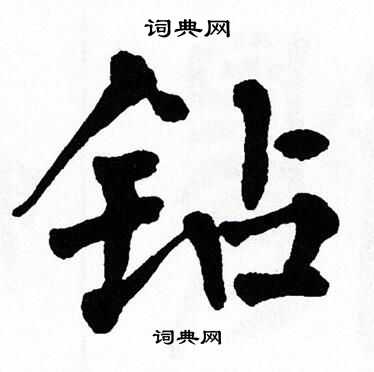 词典网
鉆
词典网